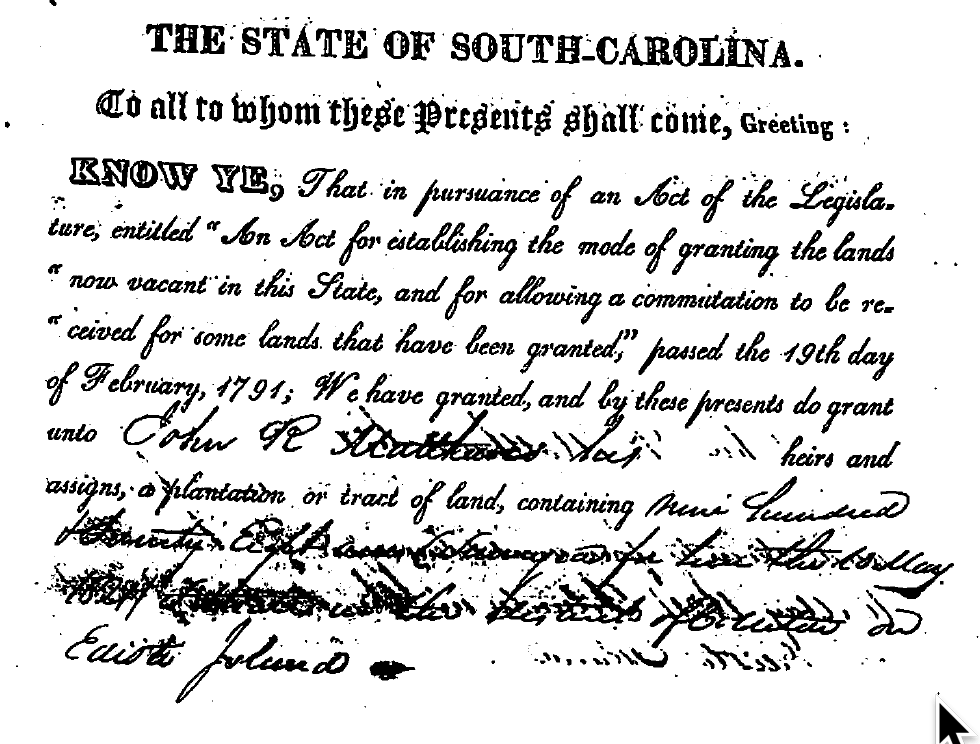 THE STATE OF SOUTH-CAROLINA.
To all to whom these Presents shall come, Greeting:
KNOW YE, That in pursuance of an Act of the Legisla-
ture, entitled "An Act for establishing the mode of granting the lands
"now vacant in this State, and for allowing a commutation to be re-
"ceived for some lands that have been granted," passed the 19th day
of February, 1791; We have granted, and by these presents do grant
unto John R his heirs and
assigns, a plantation or tract of land, containing nine hundred
Eight the May
in the district of on
Edisto Island